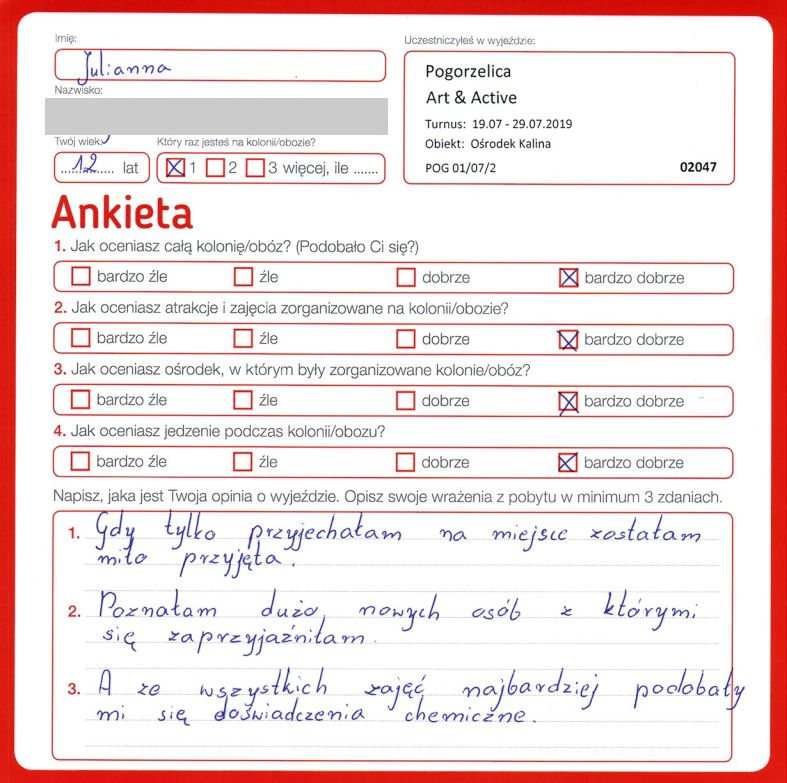 Imię:
Julianna
Nazwisko:
Twój wiek:
12 lat
Który raz jesteś na kolonii/obozie?
1 2 3 więcej, ile .......
Uczestniczyłeś w wyjeździe:
Pogorzelica
Art & Active
Turnus: 19.07 - 29.07.2019
Obiekt: Ośrodek Kalina
POG 01/07/2 02047
Ankieta
1. Jak oceniasz całą kolonię/obóz? (Podobało Ci się?)
bardzo źle źle dobrze bardzo dobrze
2. Jak oceniasz atrakcje i zajęcia zorganizowane na kolonii/obozie?
bardzo źle źle dobrze bardzo dobrze
3. Jak oceniasz ośrodek, w którym były zorganizowane kolonie/obóz?
bardzo źle źle dobrze bardzo dobrze
4. Jak oceniasz jedzenie podczas kolonii/obozu?
bardzo źle źle dobrze bardzo dobrze
Napisz, jaka jest Twoja opinia o wyjeździe. Opisz swoje wrażenia z pobytu w minimum 3 zdaniach.
1. Gdy tylko przyjechałam na miejsce zostałam
miło przyjęta.
2. Poznałam dużo nowych osób z którymi
się zaprzyjaźniłam.
3. A ze wszystkich zajęć najbardziej podobały
mi się doświadczenia chemiczne.